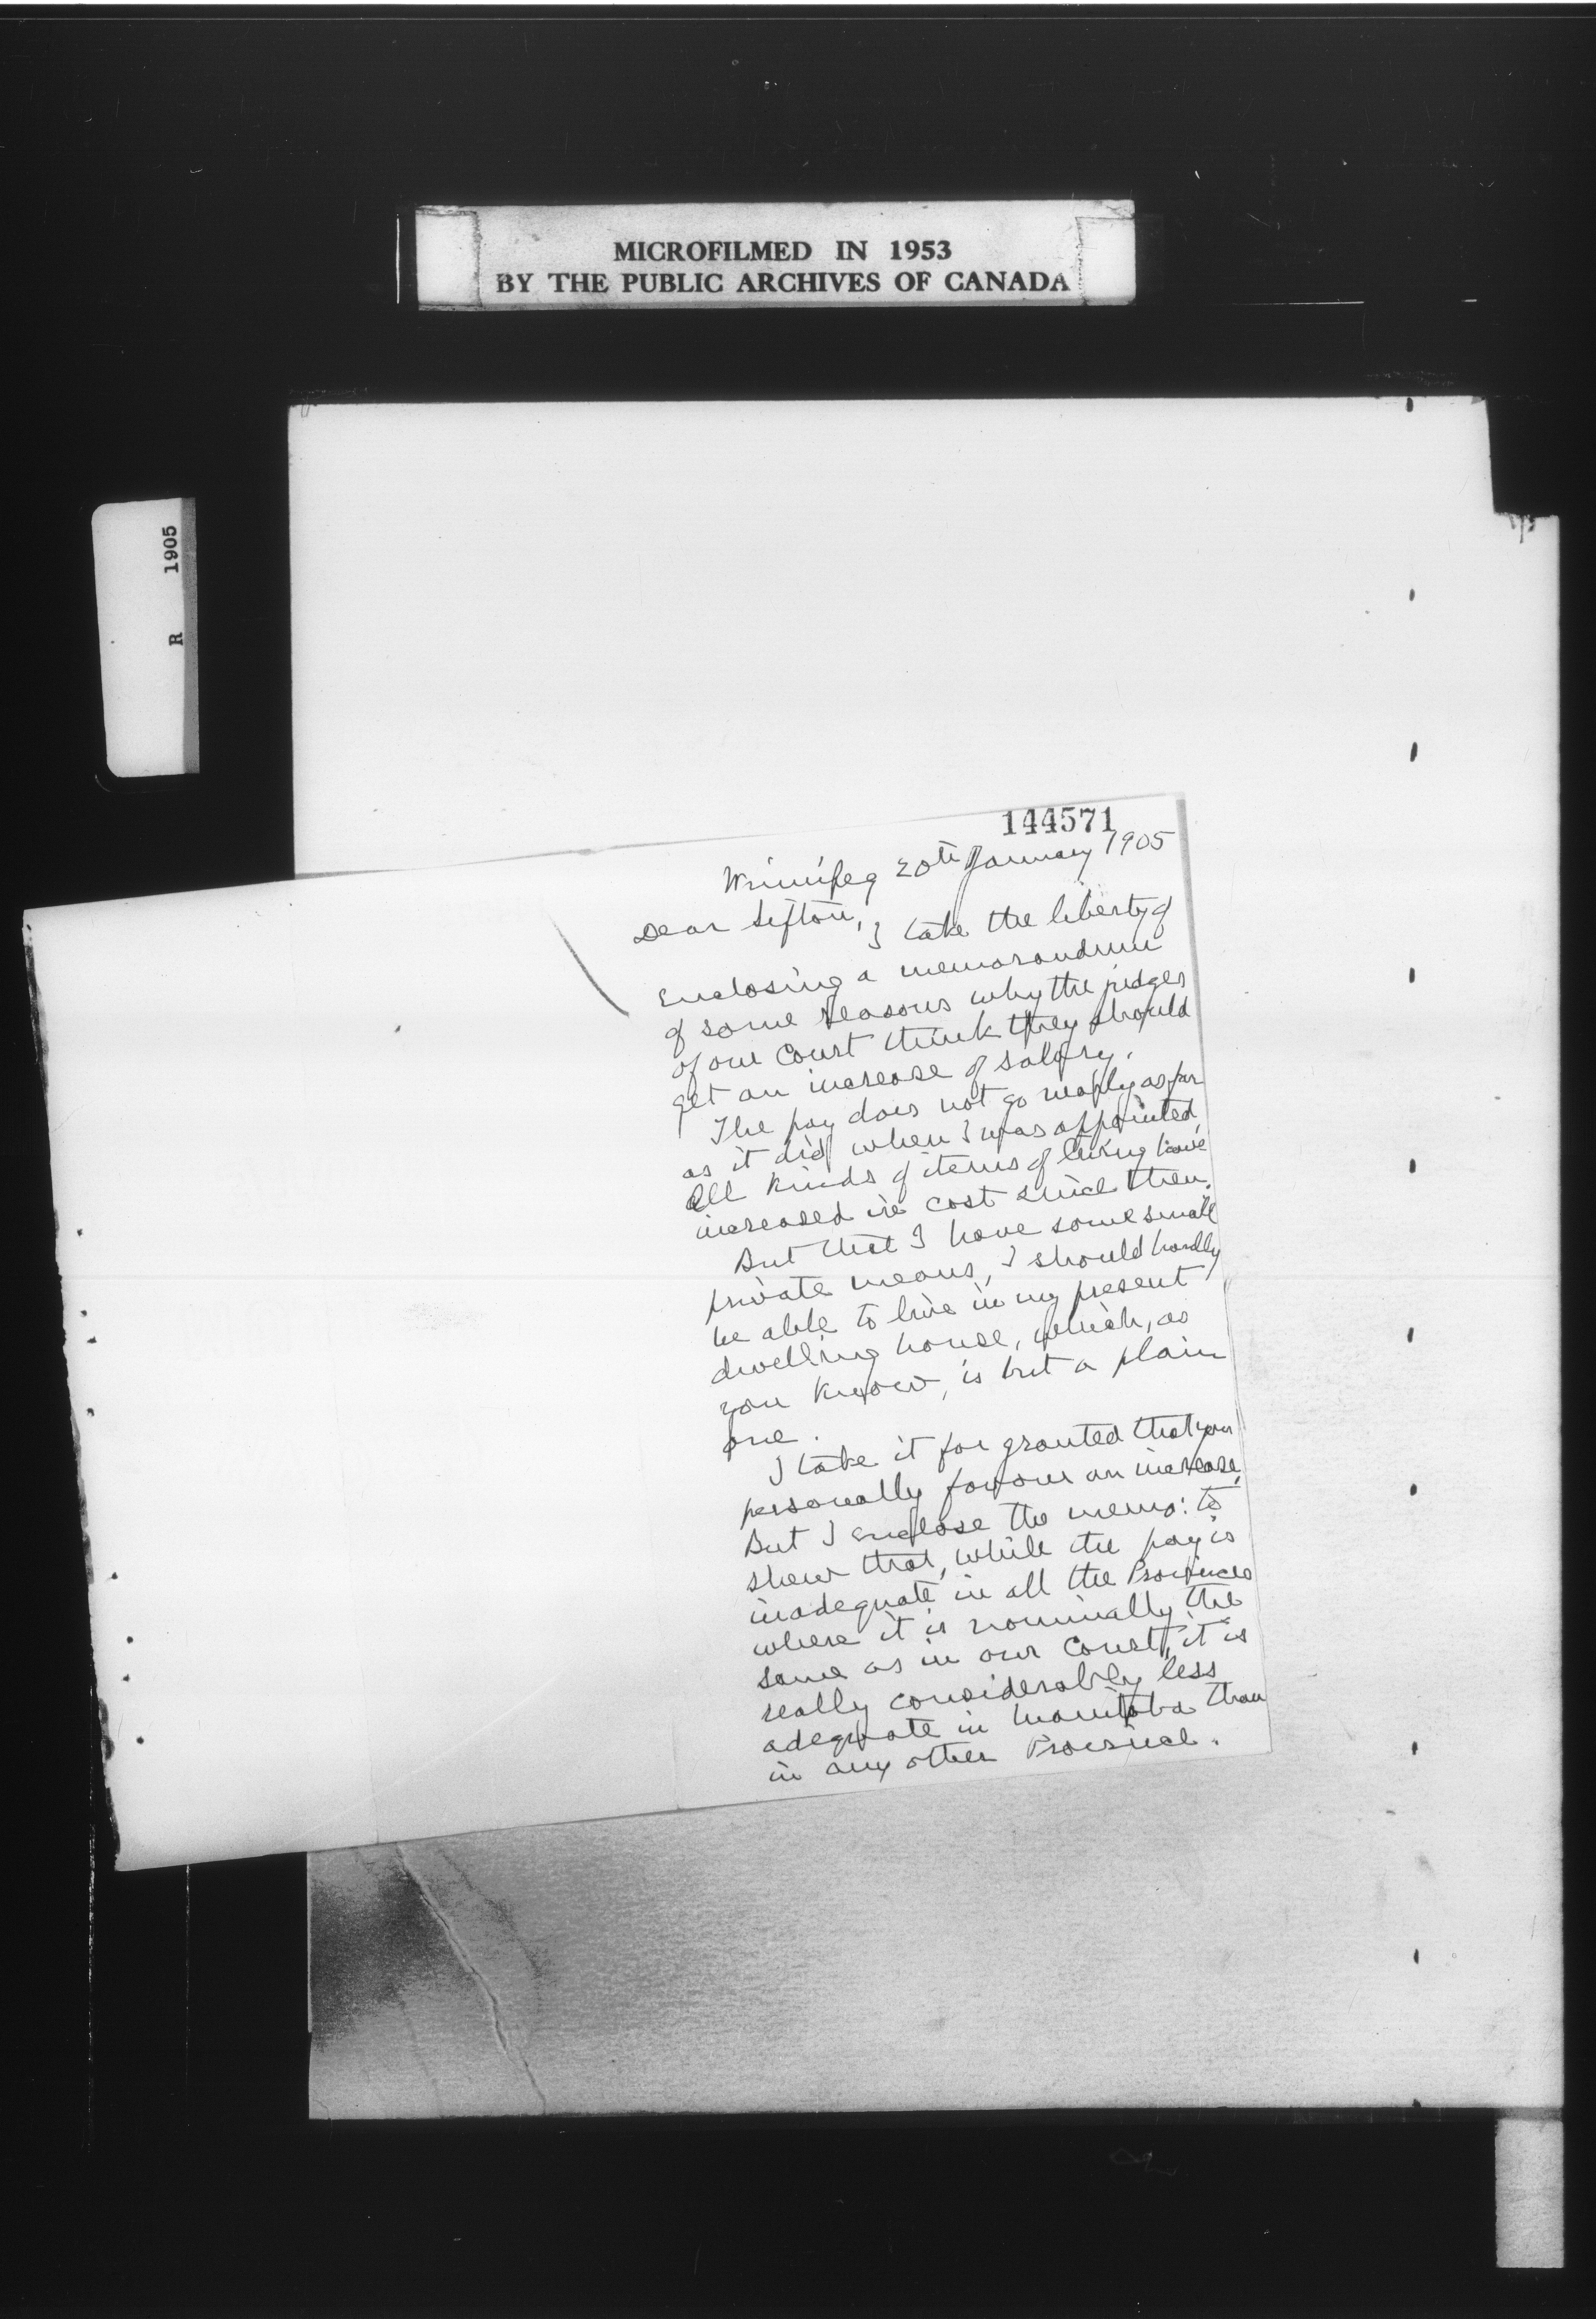 MICROFILMED IN 1953
BY THE PUBLIC ARCHIVES OF CANADA
R 1905
144571
Winnipeg 20th January 1905
Dear Sifton,
I take the liberty of
enclosing a memorandum
of some reasons why the judges
of our Court think they should
get an increase of salary.
The pay does not go nearly as far
as it did when I was appointed.
All kinds of items of living have
increased in cost since then.
But that I have some small
private means, I should hardly
be able to live in my present
dwelling house, which, as
you know, is but a plain
one.
I take it for granted that you
personally favour an increase.
But I enclose the memo: to
shew that, while the pay is
inadequate in all the Provinces
where it is nominally the
same as in our Court, it is
really considerably less
adequate in Manitoba than
in any other Province.